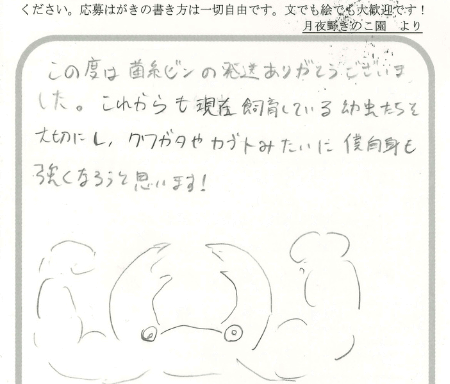 ください。応募はがきの書き方は一切自由です。文でも絵でも大歓迎です！
月夜野きのこ園　より
この度は菌糸ビンの発送ありがとうございま
した。これからも現在飼育している幼虫たちを
大切にし、クワガタやカブトみたいに僕自身も
強くなろうと思います!